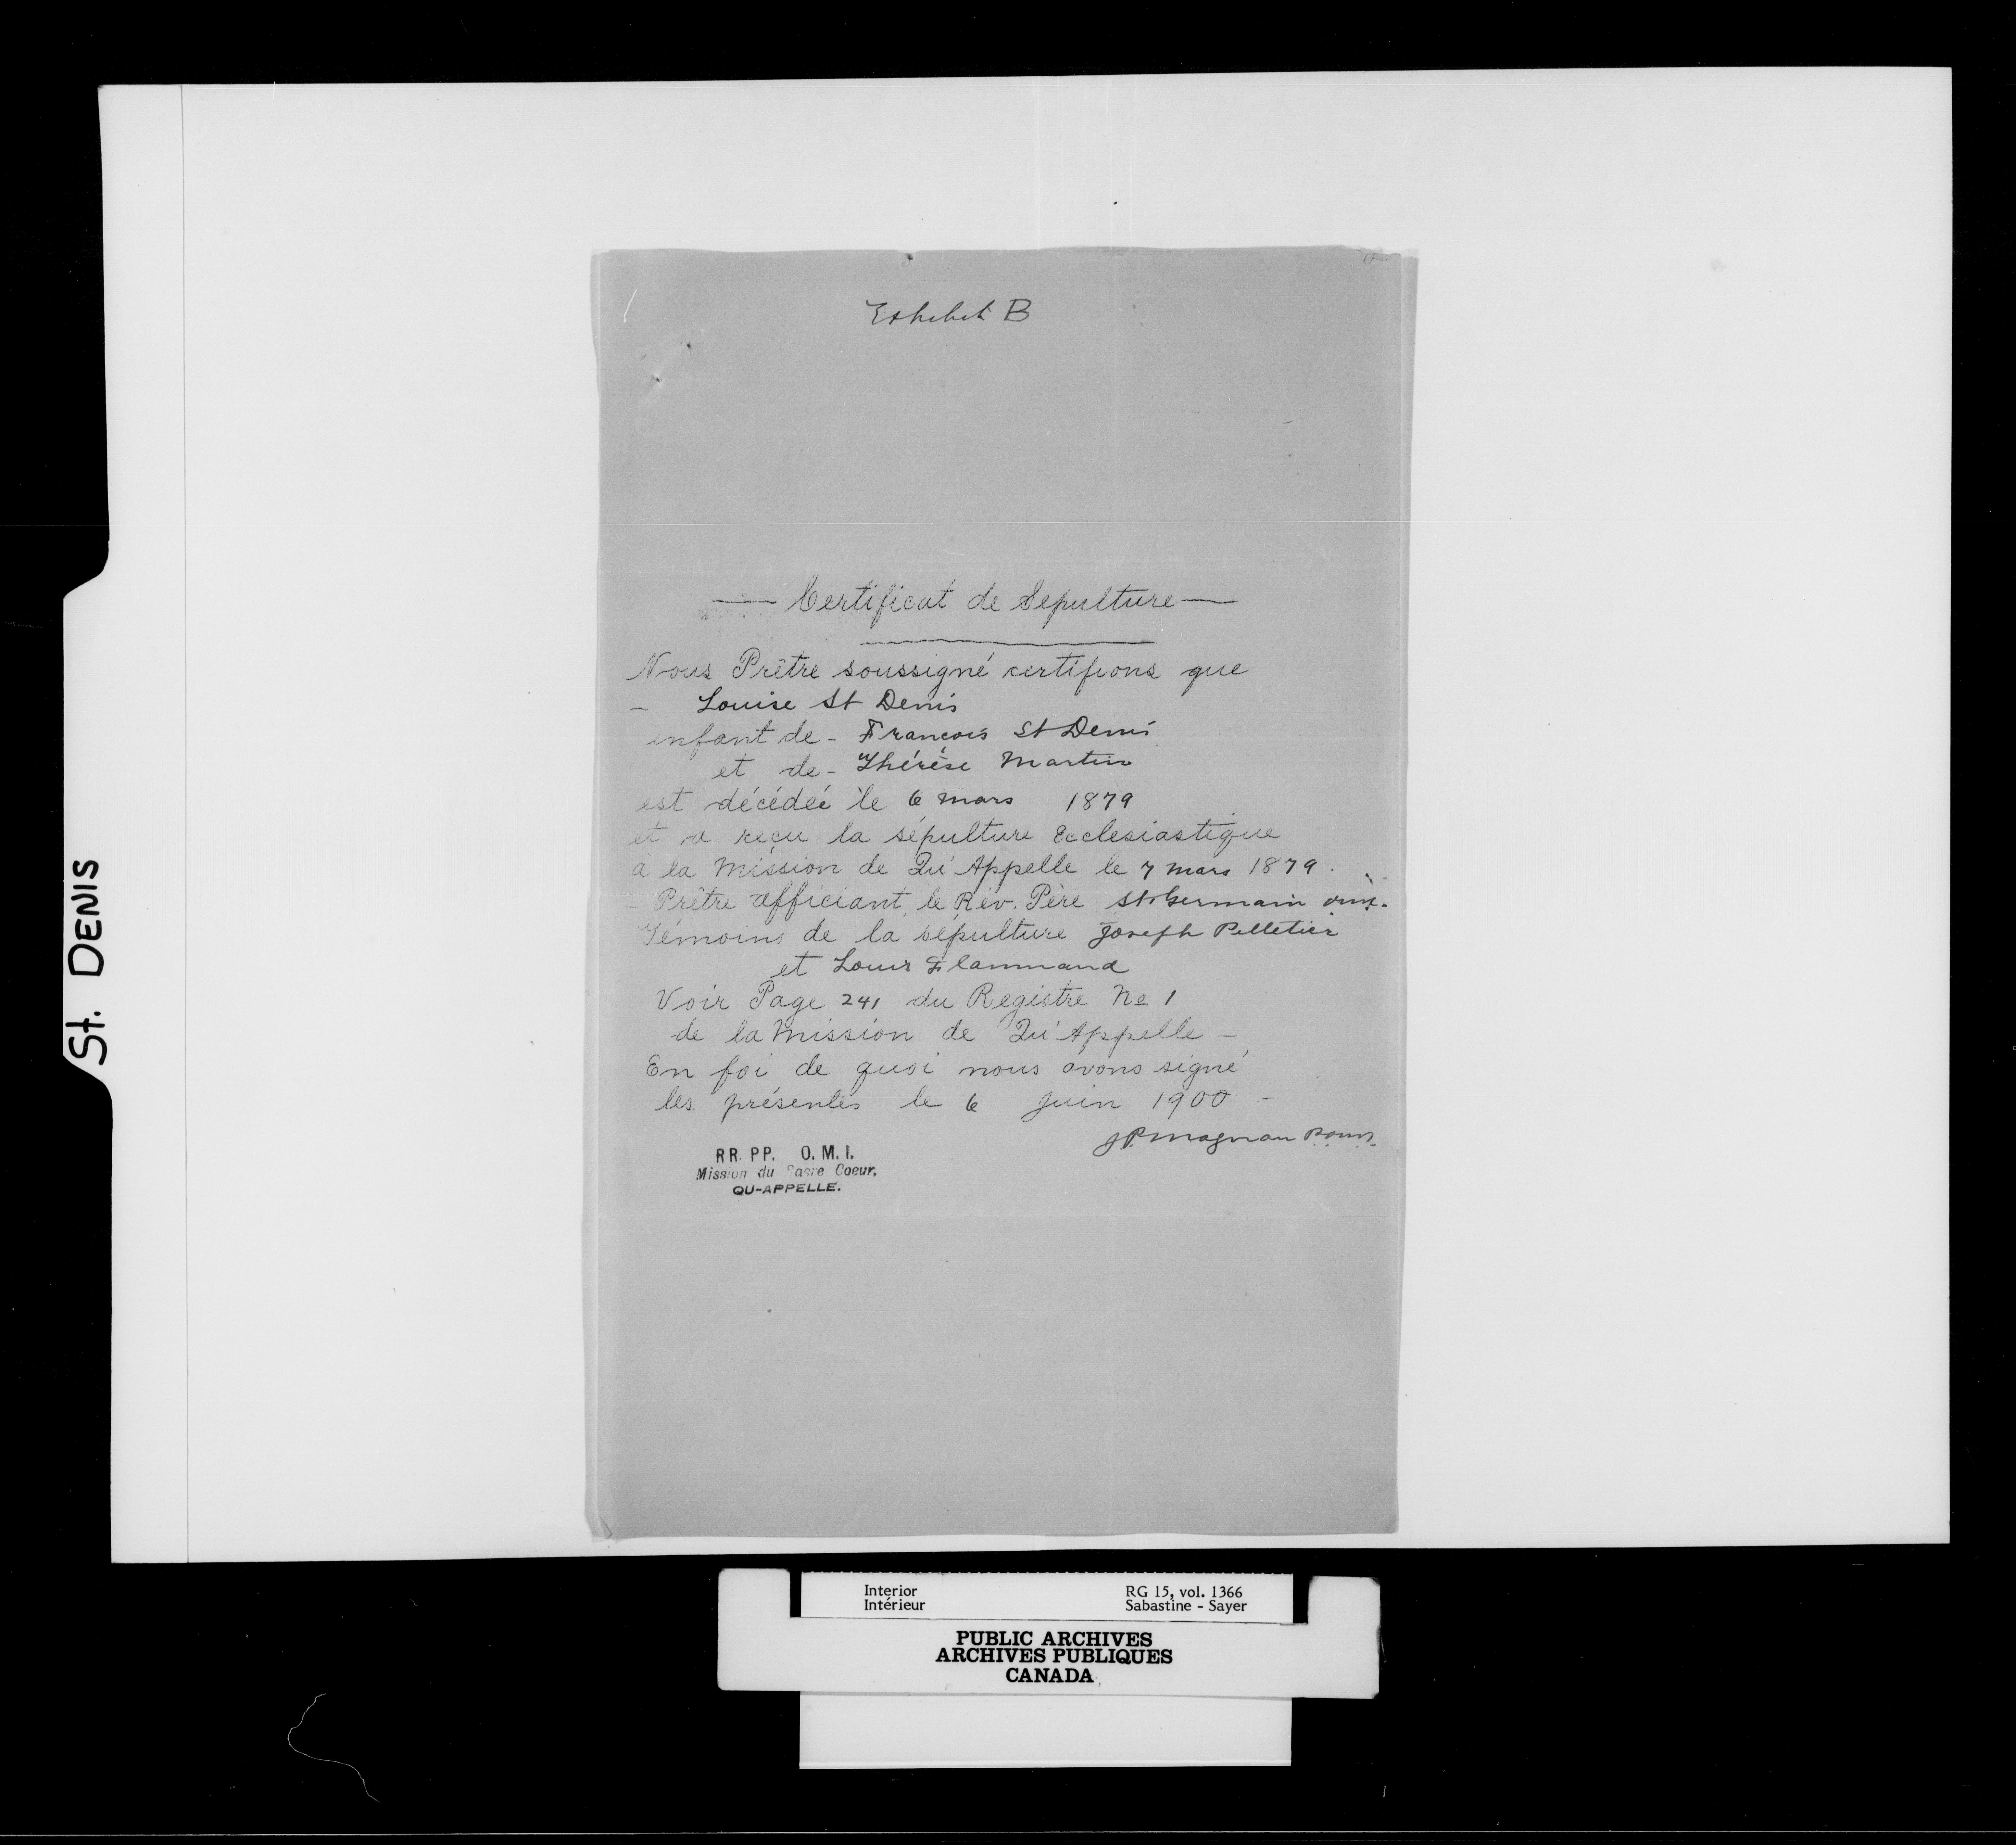 Exhibit B
— Certificat de Sépulture —
Nous Prêtre soussigné certifions que
- Louise St Denis
enfant de - Francois St Denis
et de - Thérèse Martin
est décédeé le 6 mars 1879
et a reçu la sépulture Ecclesiastique
à la Mission de Qu'Appelle le 7 mars 1879.
- Prêtre officiant, le Rév. Père St Germain omi.
Témoins de la sépulture Joseph Pelletier
et Louis Flammand
Voir Page 241 du Registre No 1
de la Mission de Qu'Appelle -
En foi de quoi nous avons signé
les présentes le 6 Juin 1900 -
JP Magnan
RR. PP. O. M. I.
Mission du Sacre Coeur,
QU-APPELLE.
St. DENIS
Interior RG 15, vol. 1366
Intérieur Sabastine - Sayer
PUBLIC ARCHIVES
ARCHIVES PUBLIQUES
CANADA